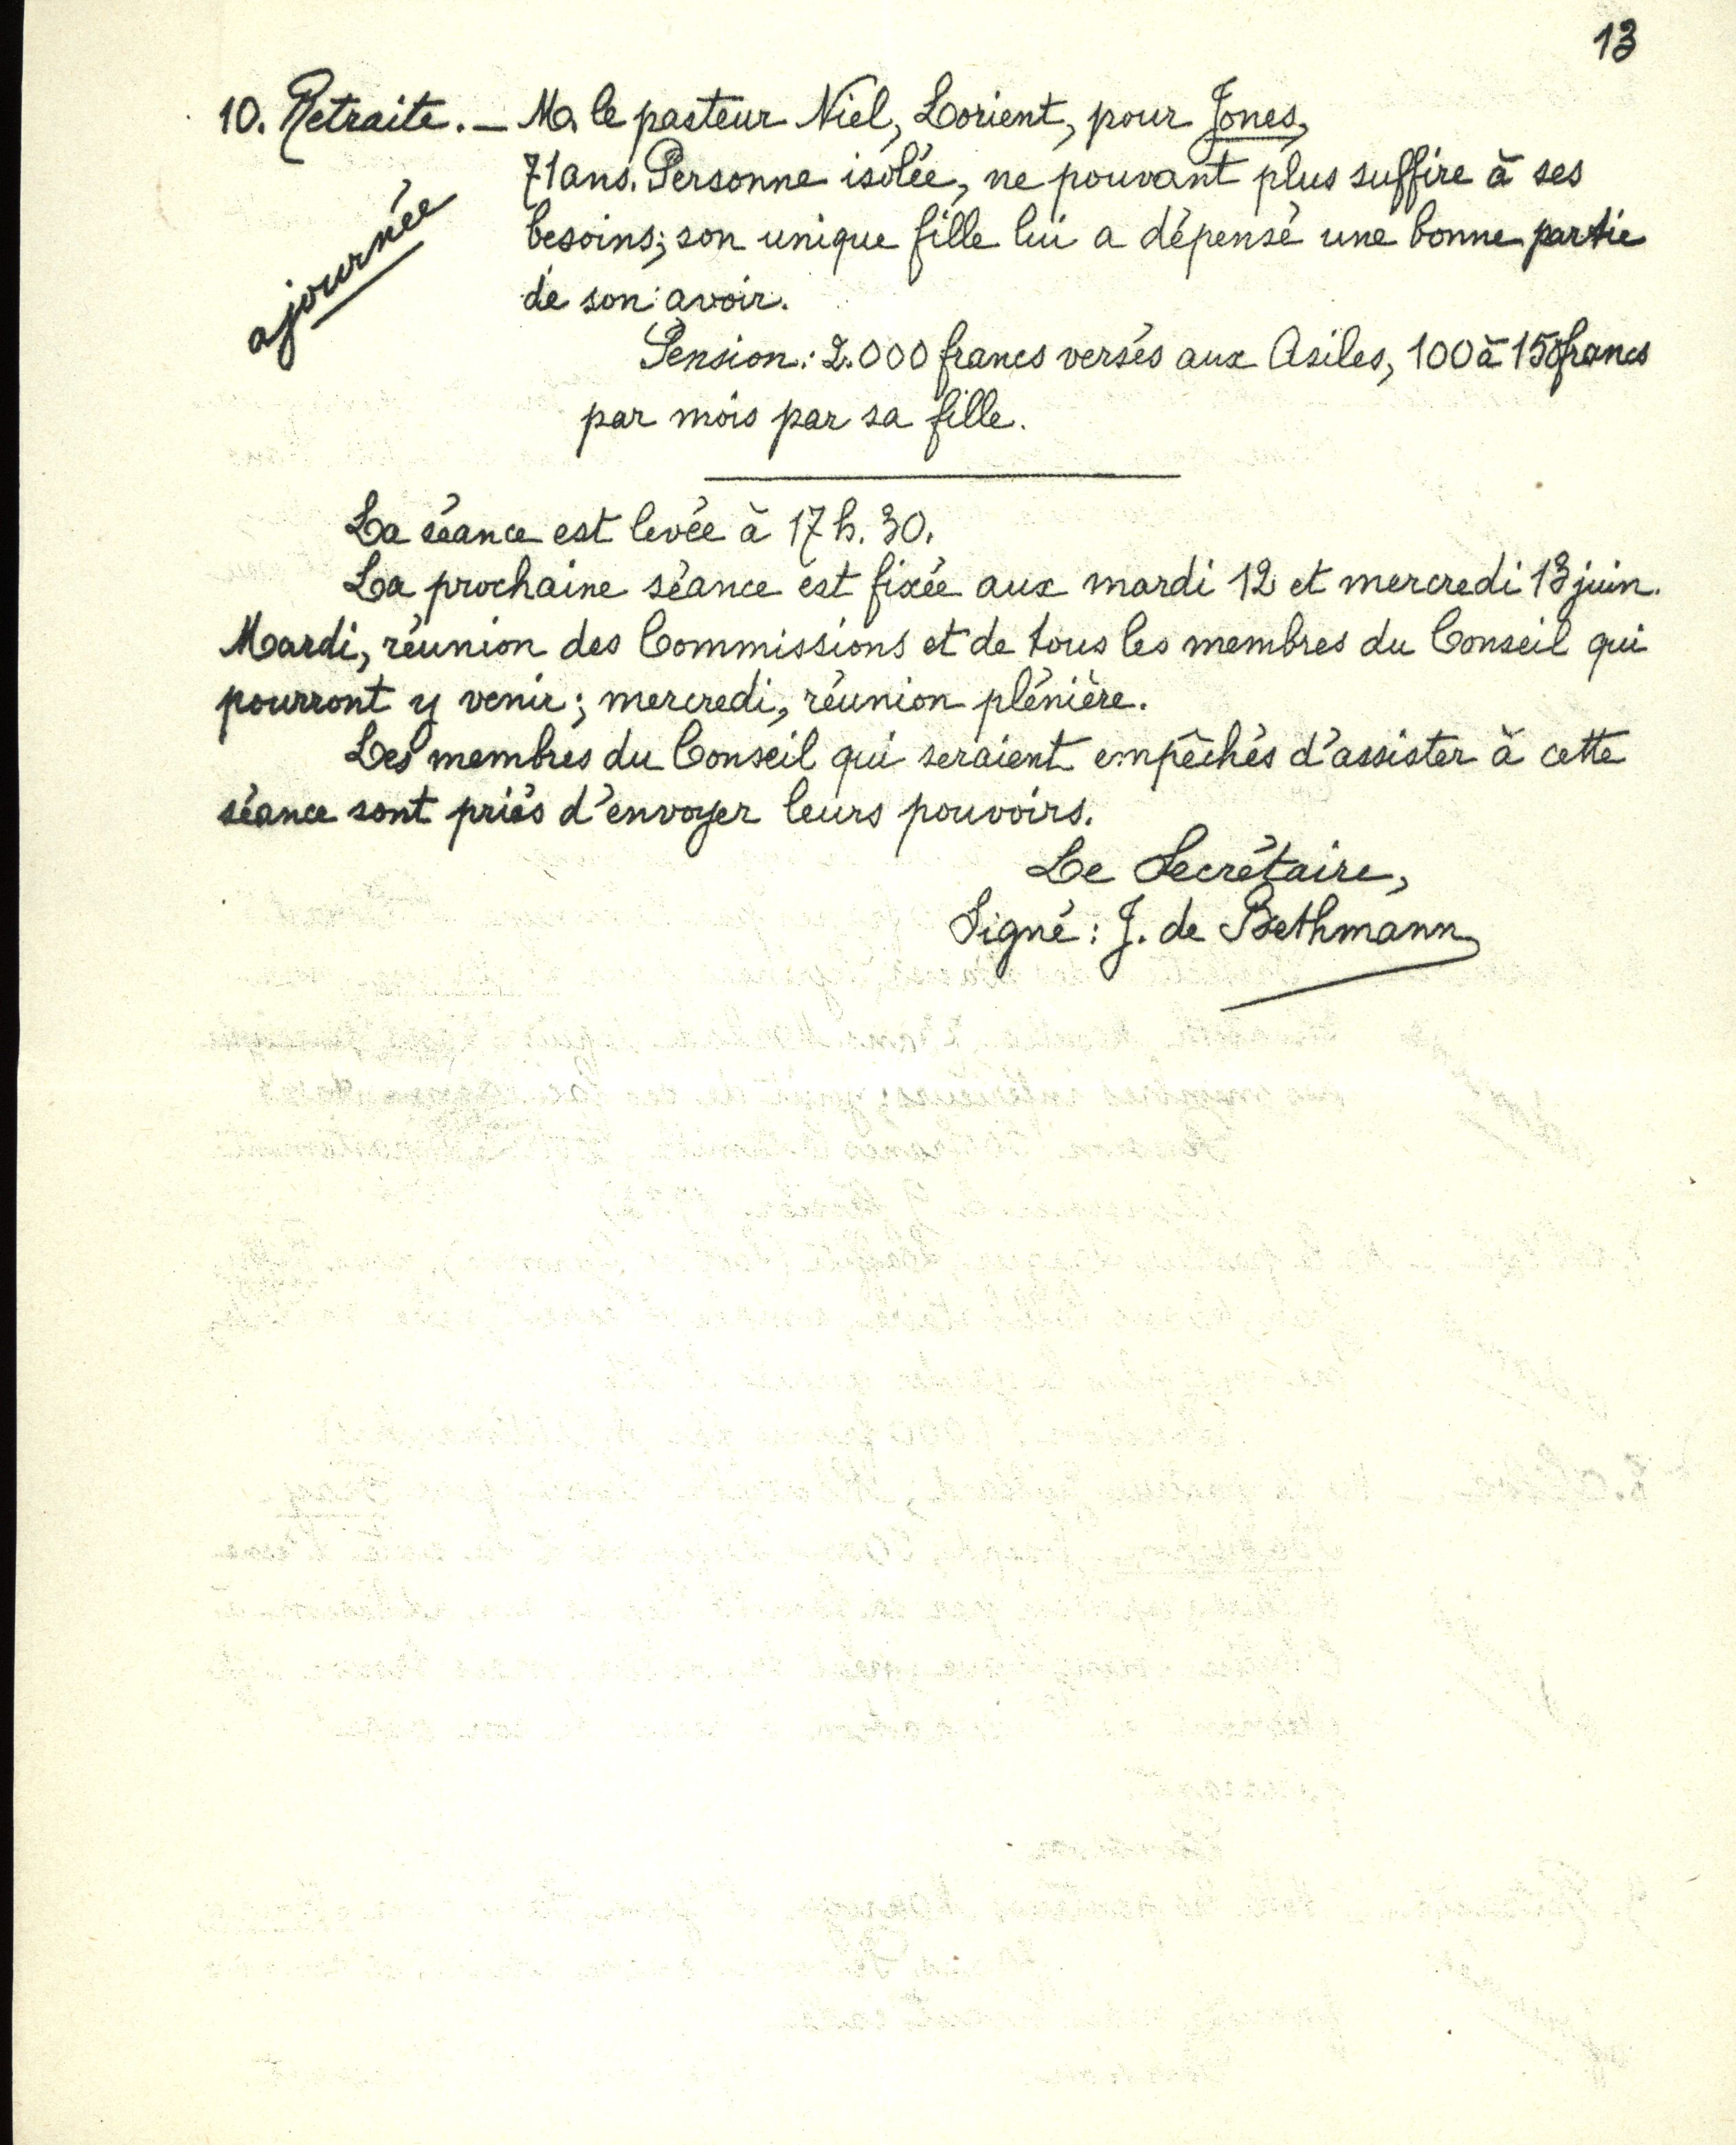 13
10. Retraite. — M. le pasteur Niel, Lorient, pour Jones,
71 ans. Personne isolée, ne pouvant plus suffire à ses
ajournée
besoins; son unique fille lui a dépensé une bonne partie
de son avoir.
Pension: 2.000 francs versés aux Asiles, 100 à 150 francs
par mois par sa fille.
La séance est levée à 17 h. 30.
La prochaine séance est fixée aux mardi 12 et mercredi 13 juin.
Mardi, réunion des Commissions et de tous les membres du Conseil qui
pourront y venir; mercredi, réunion plénière.
Les membres du Conseil qui seraient empêchés d'assister à cette
séance sont priés d'envoyer leurs pouvoirs.
Le Secrétaire,
Signé: J. de Bethmann